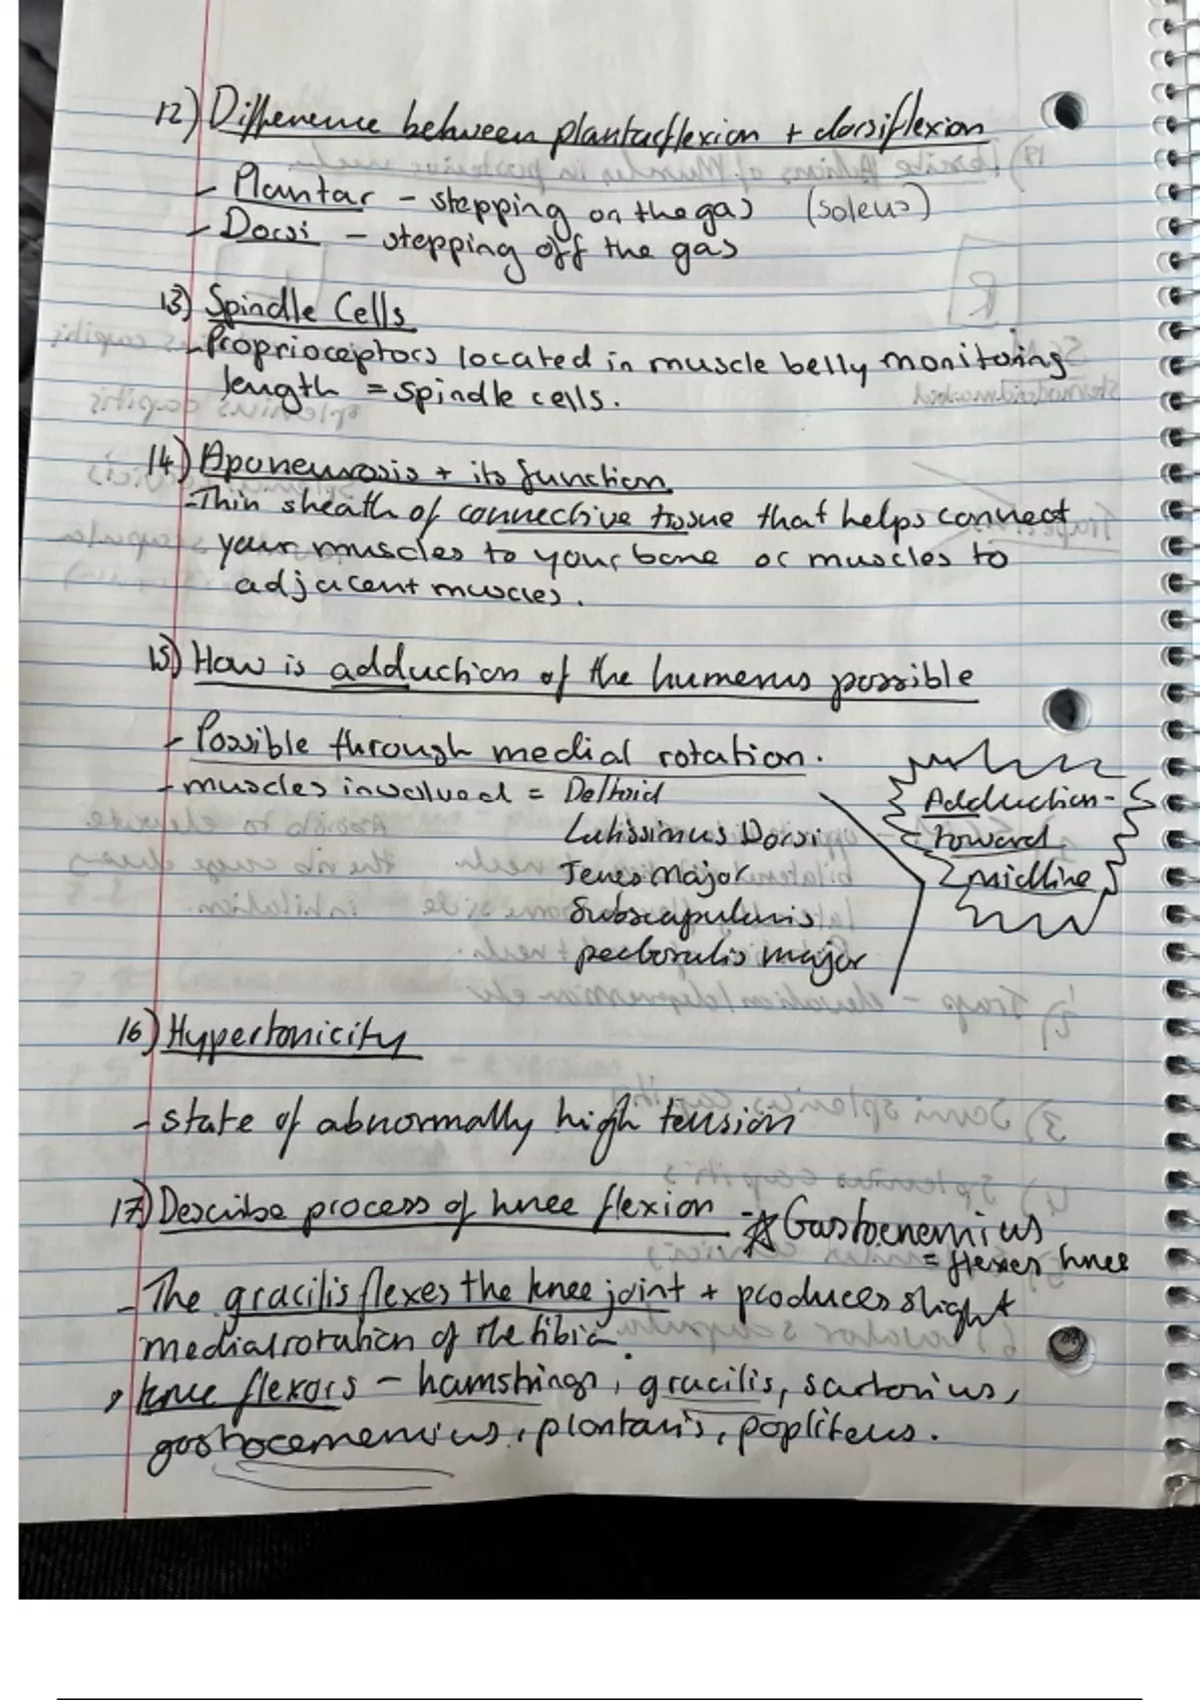 12) Difference between plantarflexion + dorsiflexion
- Plantar - stepping on the gas (soleus)
- Dorsi - stepping off the gas
13) Spindle Cells
- Proprioceptors located in muscle belly monitoring
length = spindle cells.
14) Aponeurosis + its function
- Thin sheath of connective tissue that helps connect
your muscles to your bone or muscles to
adjacent muscles.
15) How is adduction of the humerus possible
- Possible through medial rotation.
- muscles involved = Deltoid
Latissimus Dorsi
Teres Major
Subscapularis
pectoralis major
Adduction -
toward
midline
16) Hypertonicity
- state of abnormally high tension
17) Describe process of knee flexion - Gastocnemius
= flexes knee
- The gracilis flexes the knee joint + produces slight
medial rotation of the tibia.
, knee flexors - hamstrings, gracilis, sartorius,
gastrocemenius, plantaris, popliteus.